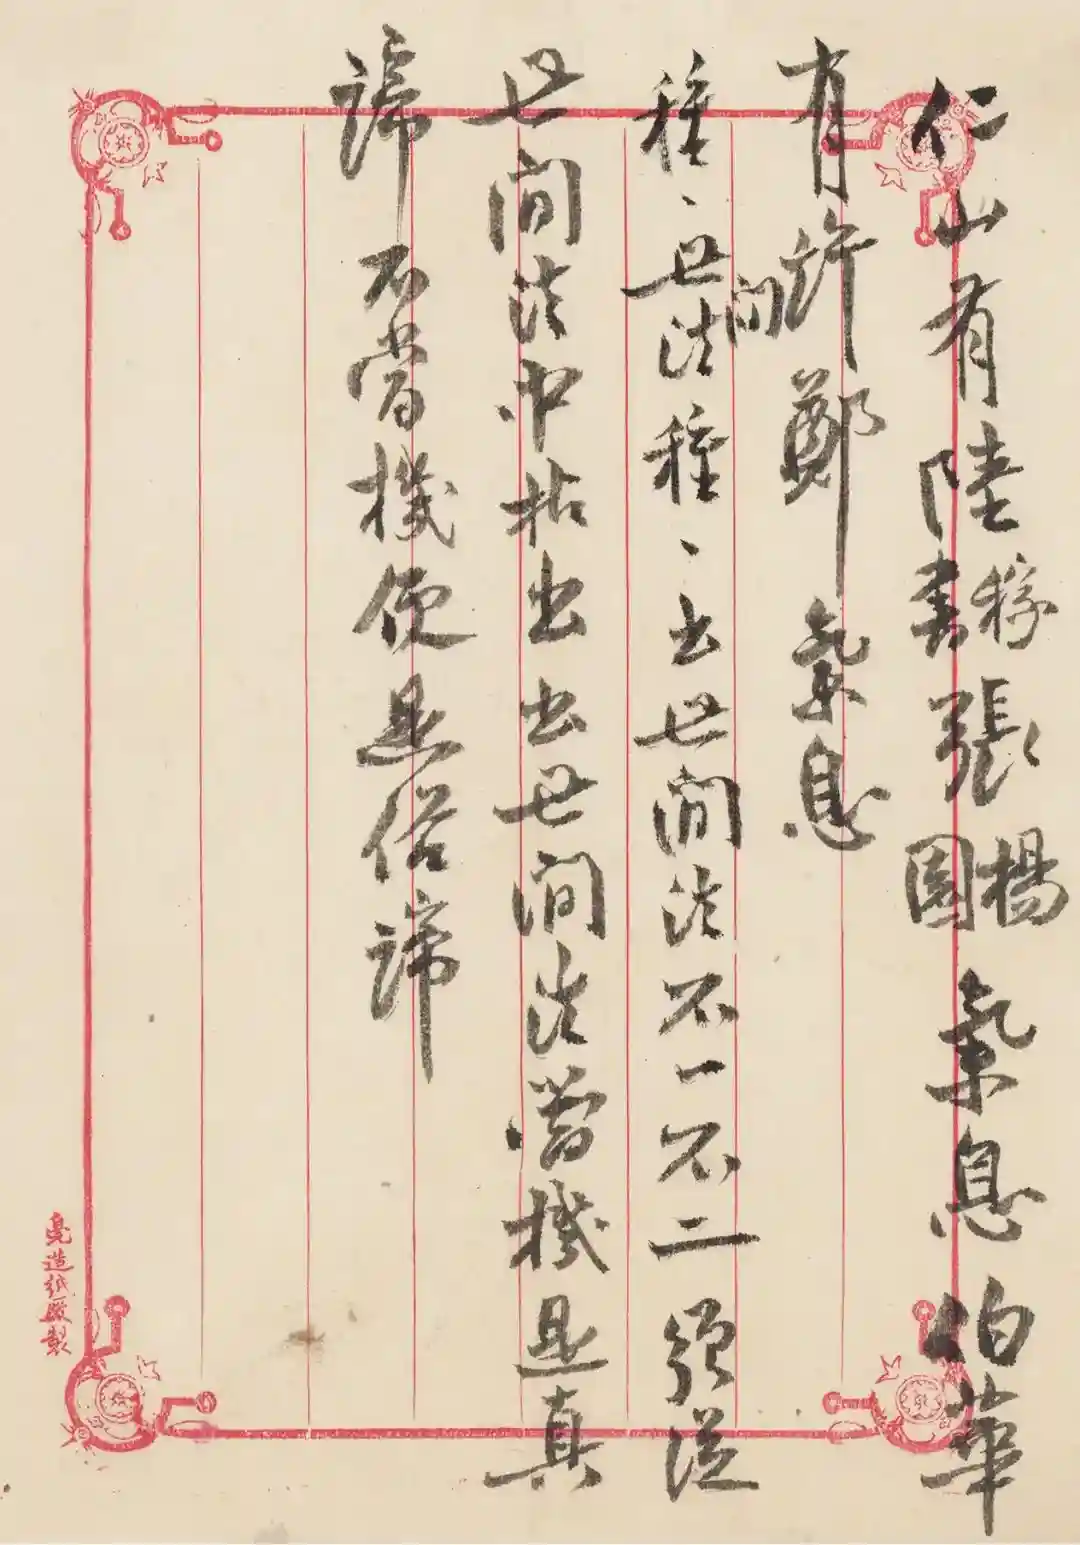 仁山有陸稼書張楊園氣息伯華
有許鄭氣息
種、世間法種、出世間法不一不二須從
世間法中拈出出世間法當機是真
諦不當機便是俗諦
造紙廠製